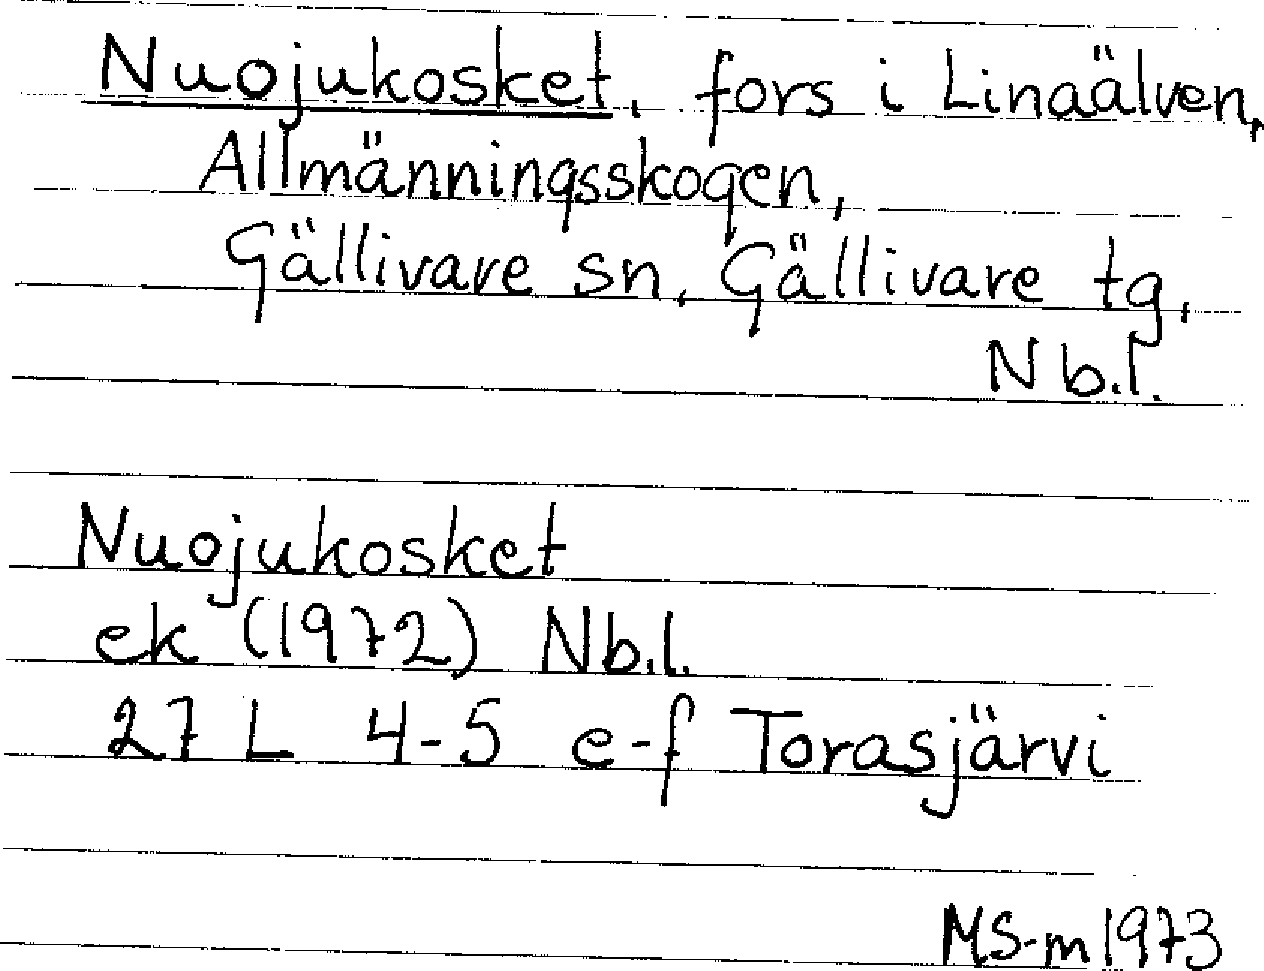 Nuojukosket, fors i Linaälven,
Allmänningsskogen,
Gällivare sn, Gällivare tg,
Nb.l.
Nuojukosket
ek (1972) Nb.l.
27 L 4-5 e-f Torasjärvi
MS-m 1973